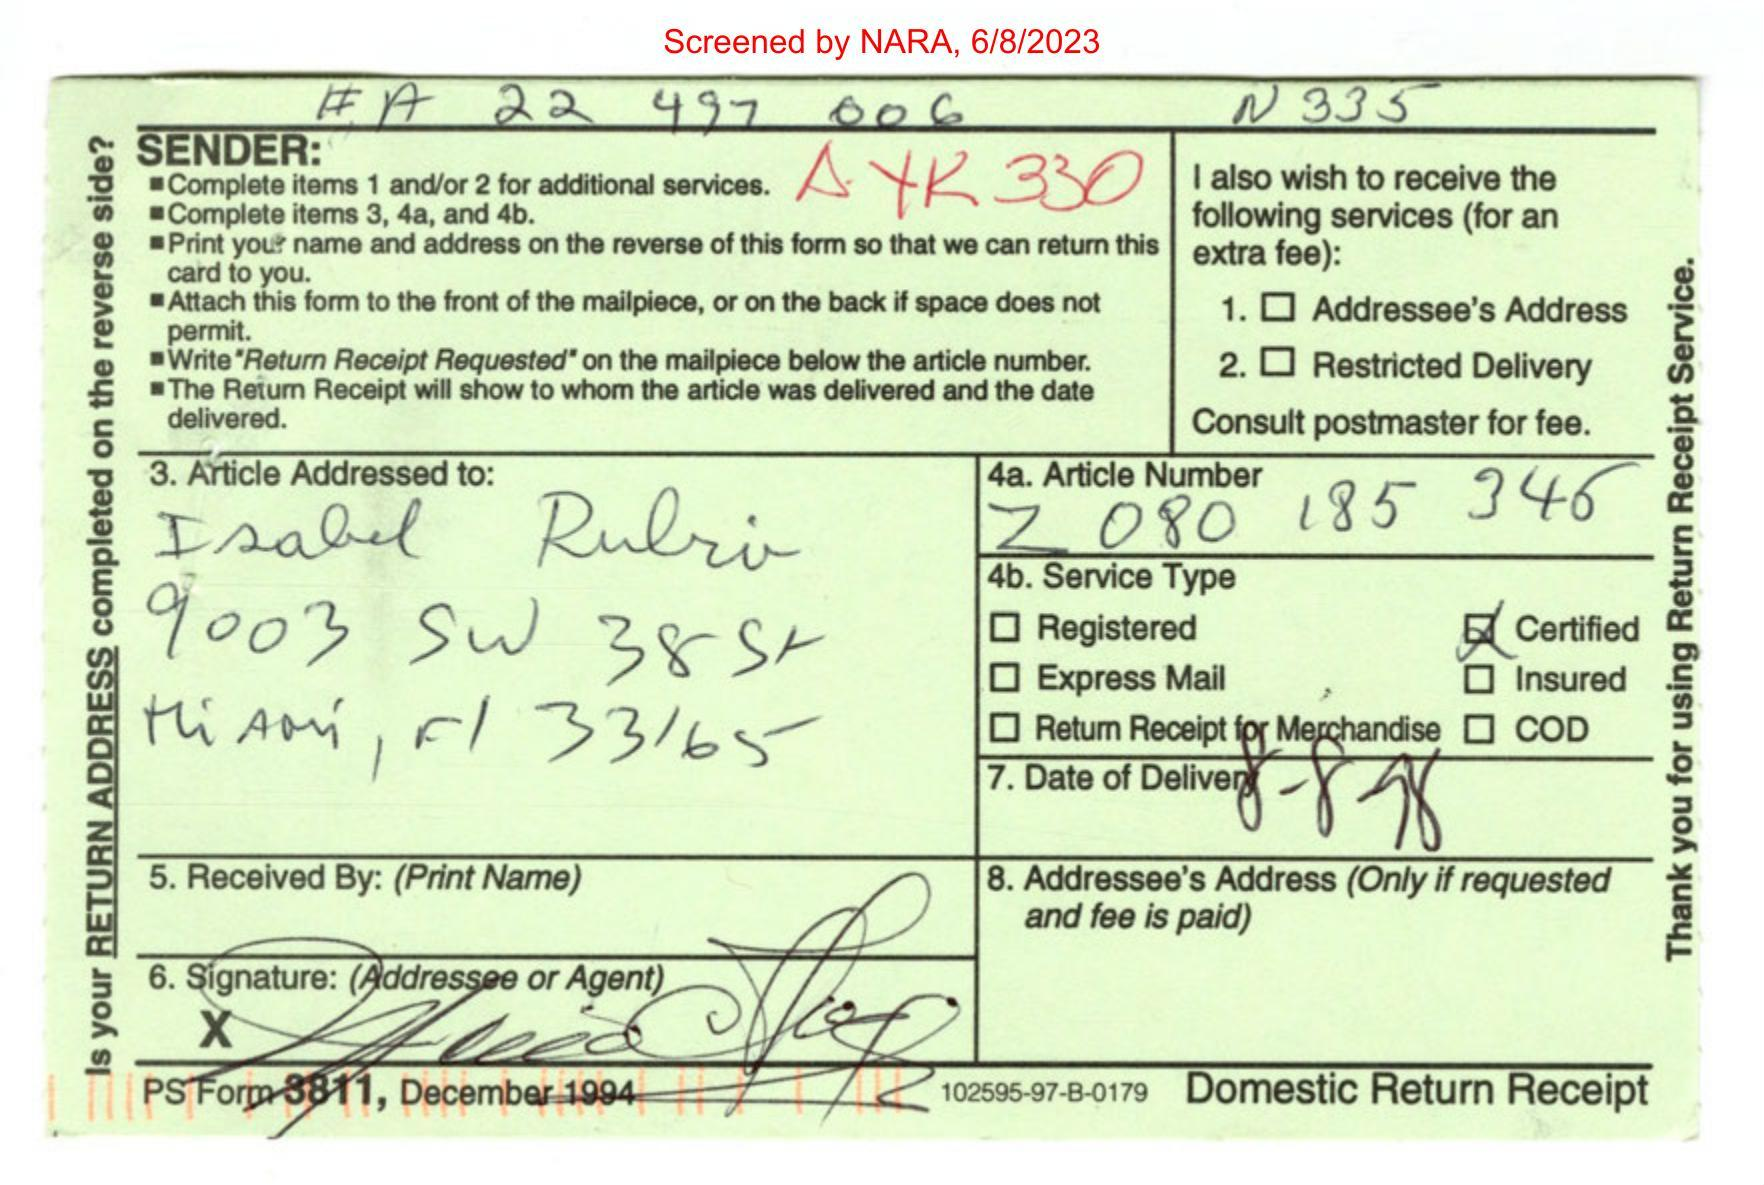 Screened by NARA, 6/8/2023
# A 22 497 006 N 335
Is your RETURN ADDRESS completed on the reverse side?
SENDER:
A YK 330
■ Complete items 1 and/or 2 for additional services.
■ Complete items 3, 4a, and 4b.
■ Print your name and address on the reverse of this form so that we can return this
card to you.
■ Attach this form to the front of the mailpiece, or on the back if space does not
permit.
■ Write "Return Receipt Requested" on the mailpiece below the article number.
■ The Return Receipt will show to whom the article was delivered and the date
delivered.
I also wish to receive the
following services (for an
extra fee):
1. ☐ Addressee's Address
2. ☐ Restricted Delivery
Consult postmaster for fee.
3. Article Addressed to:
Isabel Rubio
9003 SW 38 St
Miami, Fl 33165
4a. Article Number
Z 080 185 346
4b. Service Type
☐ Registered ☒ Certified
☐ Express Mail ☐ Insured
☐ Return Receipt for Merchandise ☐ COD
7. Date of Delivery
8-8-98
5. Received By: (Print Name)
6. Signature: (Addressee or Agent)
X
8. Addressee's Address (Only if requested
and fee is paid)
PS Form 3811, December 1994 102595-97-B-0179 Domestic Return Receipt
Thank you for using Return Receipt Service.